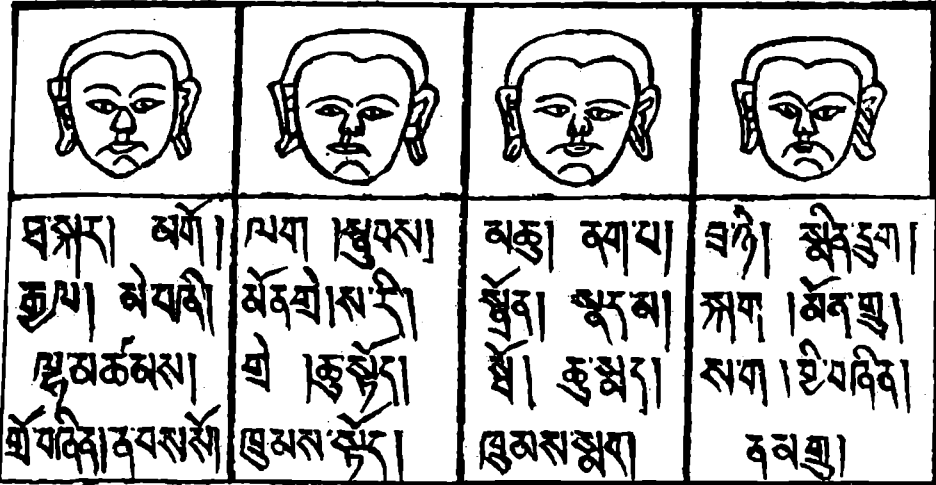 ཐ་སྐར། མགོ།
རྒྱལ། མེ་བཞི།
ལྷ་མཚམས།
གྲོ་བཞིན། ནབ་
ལག །སྣུབས།
མོན་གྲེ། ས་རི།
གྲེ །ཆུ་སྟོད།
ཁྲུམས་སྟོད།
མཆུ། ནག་པ།
སྣྲོན། སྣར་མ།
ཆུ་སྨད།
ཁྲུམས་སྨད
བྲ་ཉེ། སྨིན་དྲུག།
སྐག །མོན་གྲུ།
ས་ག །བྱི་བཞིན།
ནམ་གྲུ།